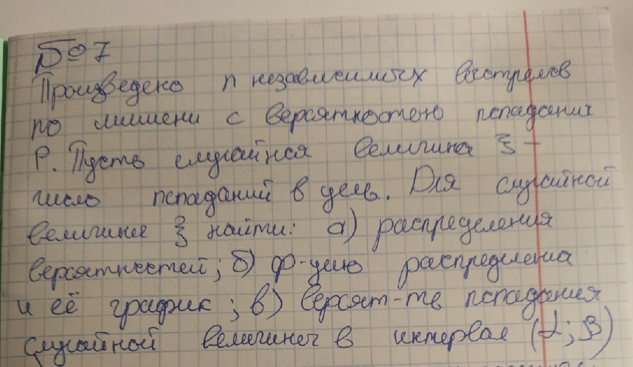 Б№7
Произведено n независимых выстрелов
по мишени с вероятностью попадания
P. Пусть случайная величина ξ –
число попаданий в цель. Для случайной
величины ξ найти: а) распределения
вероятностей; б) ф-цию распределения
и её график; в) вероят-ть попадания
случайной величины в интервал (α; β)